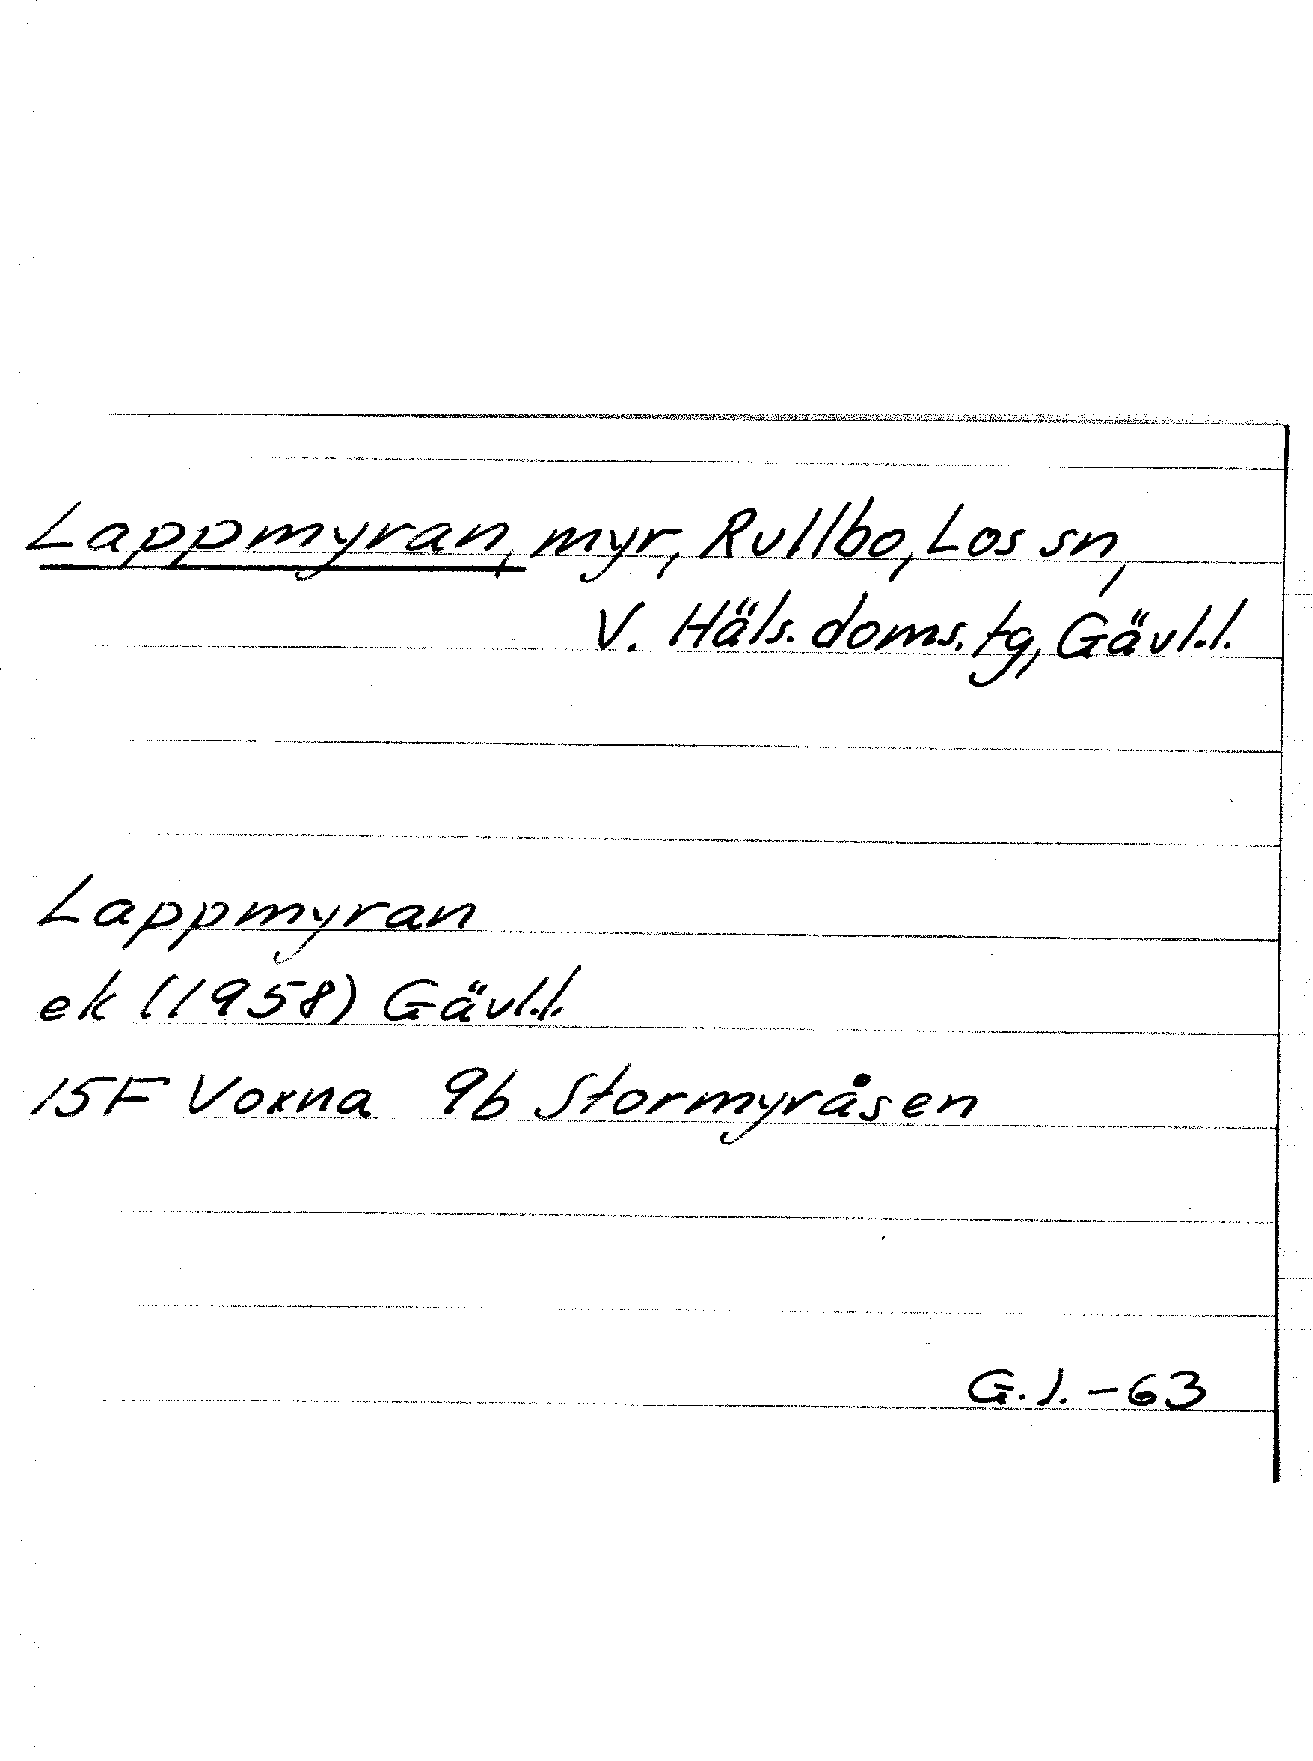 Lappmyran, myr, Rullbo, Los sn,
V. Häls. doms. tg, Gävl.l.
Lappmyran
ek (1958) Gävl.l.
15F Voxna 9b Stormyråsen
G.J. -63